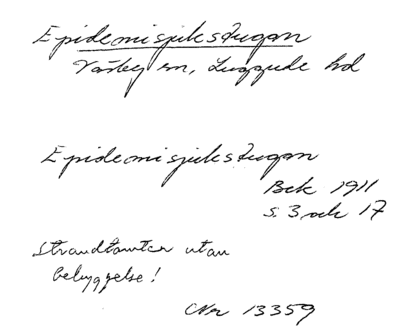 Epidemisjukstugan
Väsby sn, Luggude hd
Epidemisjukstugan
Bek 1911
s. 3 och 17
Strandtomten utan
bebyggelse!
Nr 13359